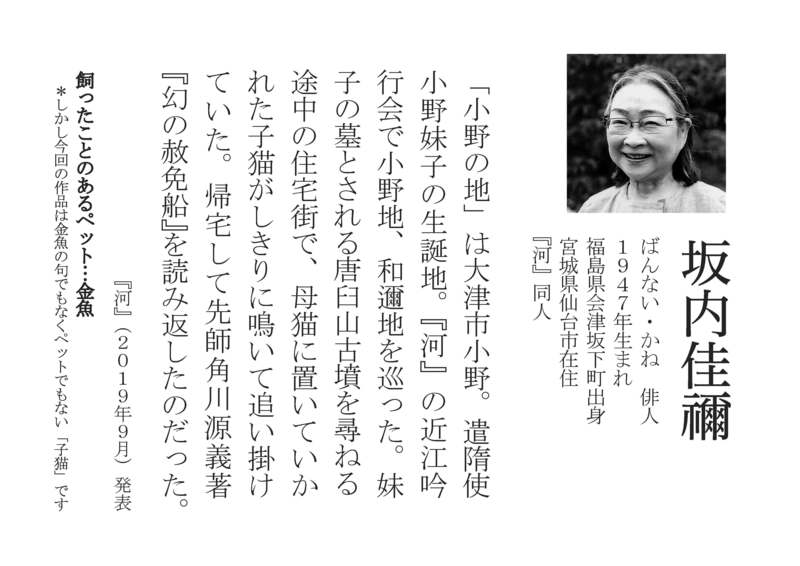 坂内佳禰
ばんない・かね　俳人
１９４７年生まれ
福島県会津坂下町出身
宮城県仙台市在住
『河』同人
「小野の地」は大津市小野。遣隋使
小野妹子の生誕地。『河』の近江吟
行会で小野地、和邇地を巡った。妹
子の墓とされる唐臼山古墳を尋ねる
途中の住宅街で、母猫に置いていか
れた子猫がしきりに鳴いて追い掛け
ていた。帰宅して先師角川源義著
『幻の赦免船』を読み返したのだった。
『河』（２０１９年９月）発表
飼ったことのあるペット…金魚
＊しかし今回の作品は金魚の句でもなくペットでもない「子猫」です